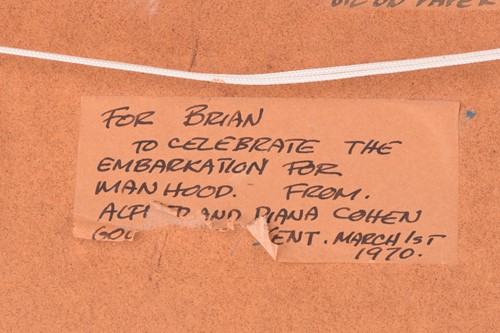 OIL ON PAPER
FOR BRIAN
TO CELEBRATE THE
EMBARKATION FOR
MANHOOD. FROM.
AND DIANA COHEN
MARCH 1ST
1970.